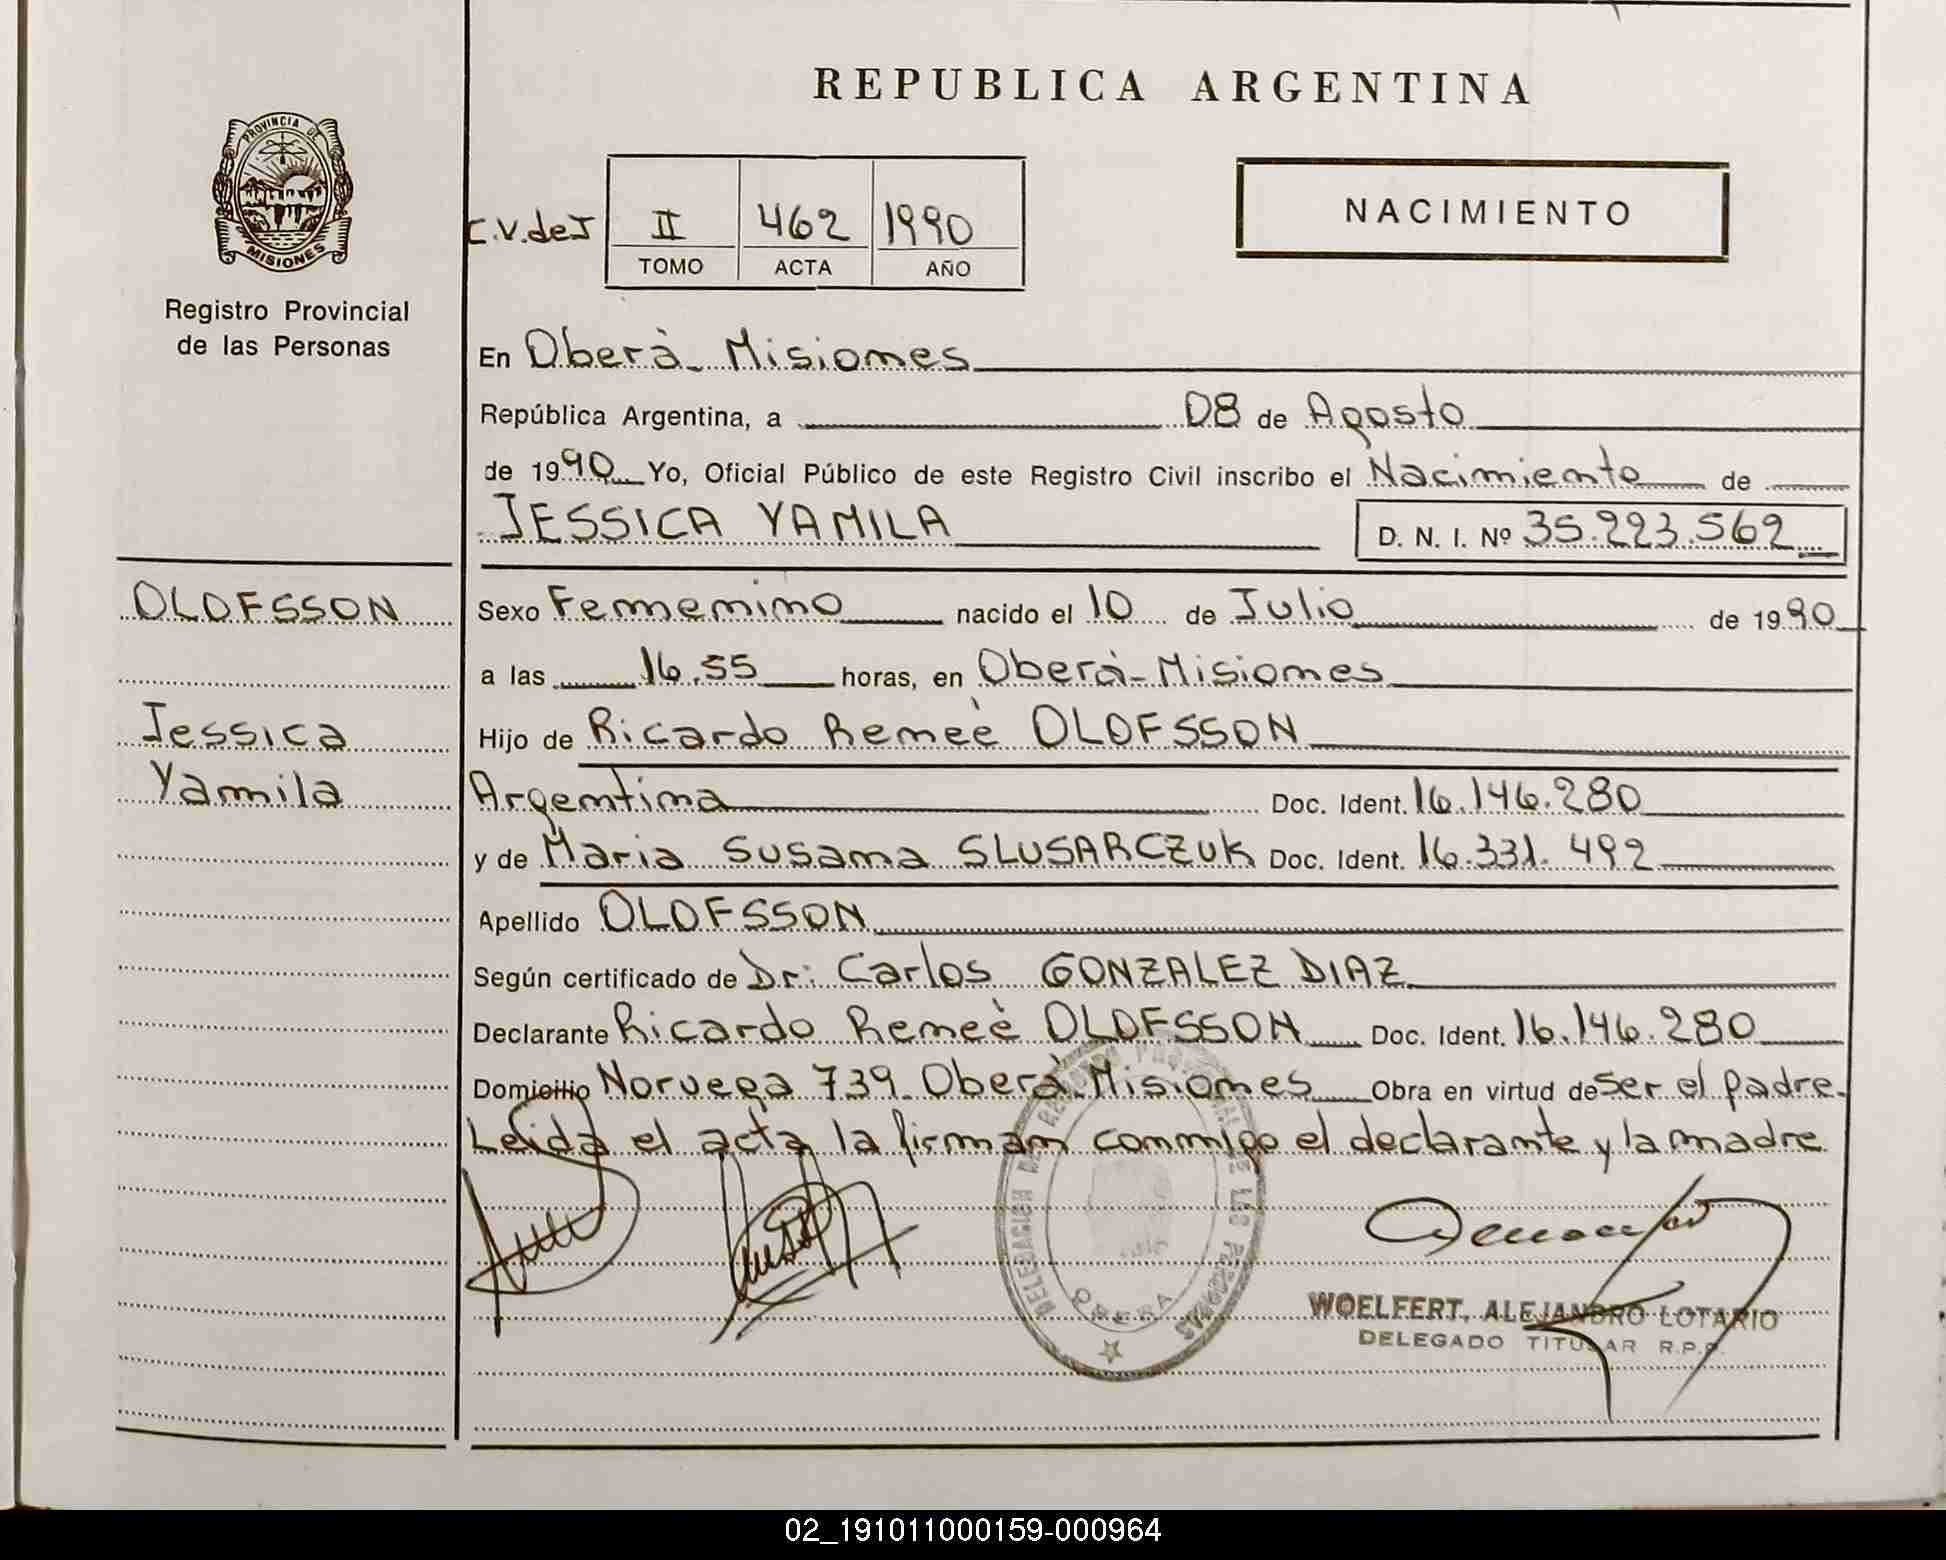 REPUBLICA ARGENTINA
PROVINCIA DE
MISIONES
Registro Provincial
de las Personas
C.V.deJ II 462 1990
TOMO ACTA AÑO
NACIMIENTO
En Oberà - Misiones
República Argentina, a 08 de Agosto
de 1990 Yo, Oficial Público de este Registro Civil inscribo el Nacimiento de
JESSICA YAMILA D. N. I. Nº 35.223.562
OLOFSSON
Jessica
Yamila
Sexo Femenino nacido el 10 de Julio de 1990
a las 16.55 horas, en Oberà - Misiones
Hijo de Ricardo Reneè OLOFSSON
Argentina Doc. Ident. 16.146.280
y de Maria Susana SLUSARCZUK Doc. Ident. 16.331.492
Apellido OLOFSSON
Según certificado de Dr: Carlos GONZALEZ DIAZ
Declarante Ricardo Reneè OLOFSSON Doc. Ident. 16.146.280
Domicilio Noruega 739 - Oberà Misiones Obra en virtud de ser el padre.
Leida el acta la firman conmigo el declarante y la madre
DELEGACION DEL REGISTRO PROVINCIAL DE LAS PERSONAS
OBERA
WOELFERT, ALEJANDRO LOTARIO
DELEGADO TITULAR R.P.P.
02_191011000159-000964